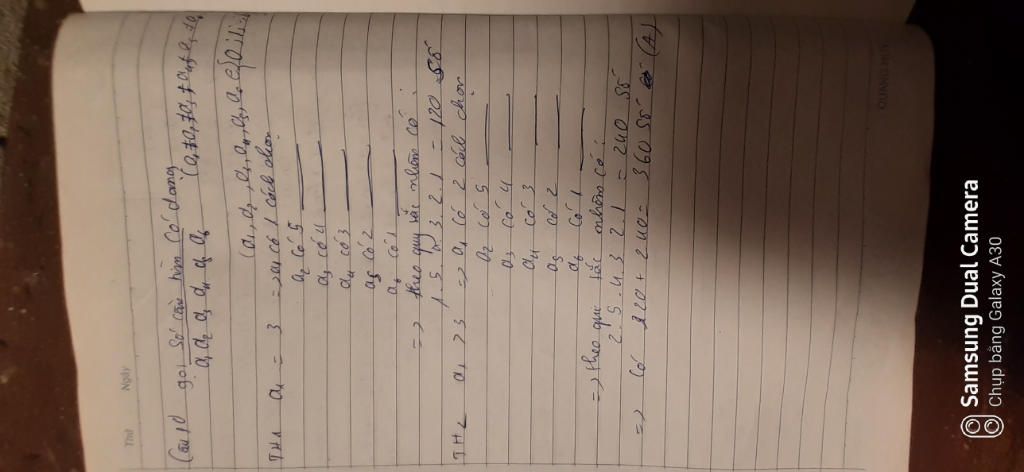 Thứ
Ngày
Câu 10 gọi số cần tìm có dạng
a1 a2 a3 a4 a5 a6 (a1≠a2≠a3≠a4≠a5≠a6
(a1, a2, a3, a4, a5, a6
TH1 a1 = 3 => a1 có 1 cách chọn
a2 có 5
a3 có 4
a4 có 3
a5 có 2
a6 có 1
=> theo quy tắc nhân có:
1.5 3 2.1 = 120 số
TH2 a1 > 3 => a1 có 2 cách chọn
a2 có 5
a3 có 4
a4 có 3
a5 có 2
a6 có 1
=> theo qui tắc nhân có:
2.5.4 3 2.1 = 240 số
=> có 120 + 240 = 360 số (A)
Samsung Dual Camera
Chụp bằng Galaxy A30